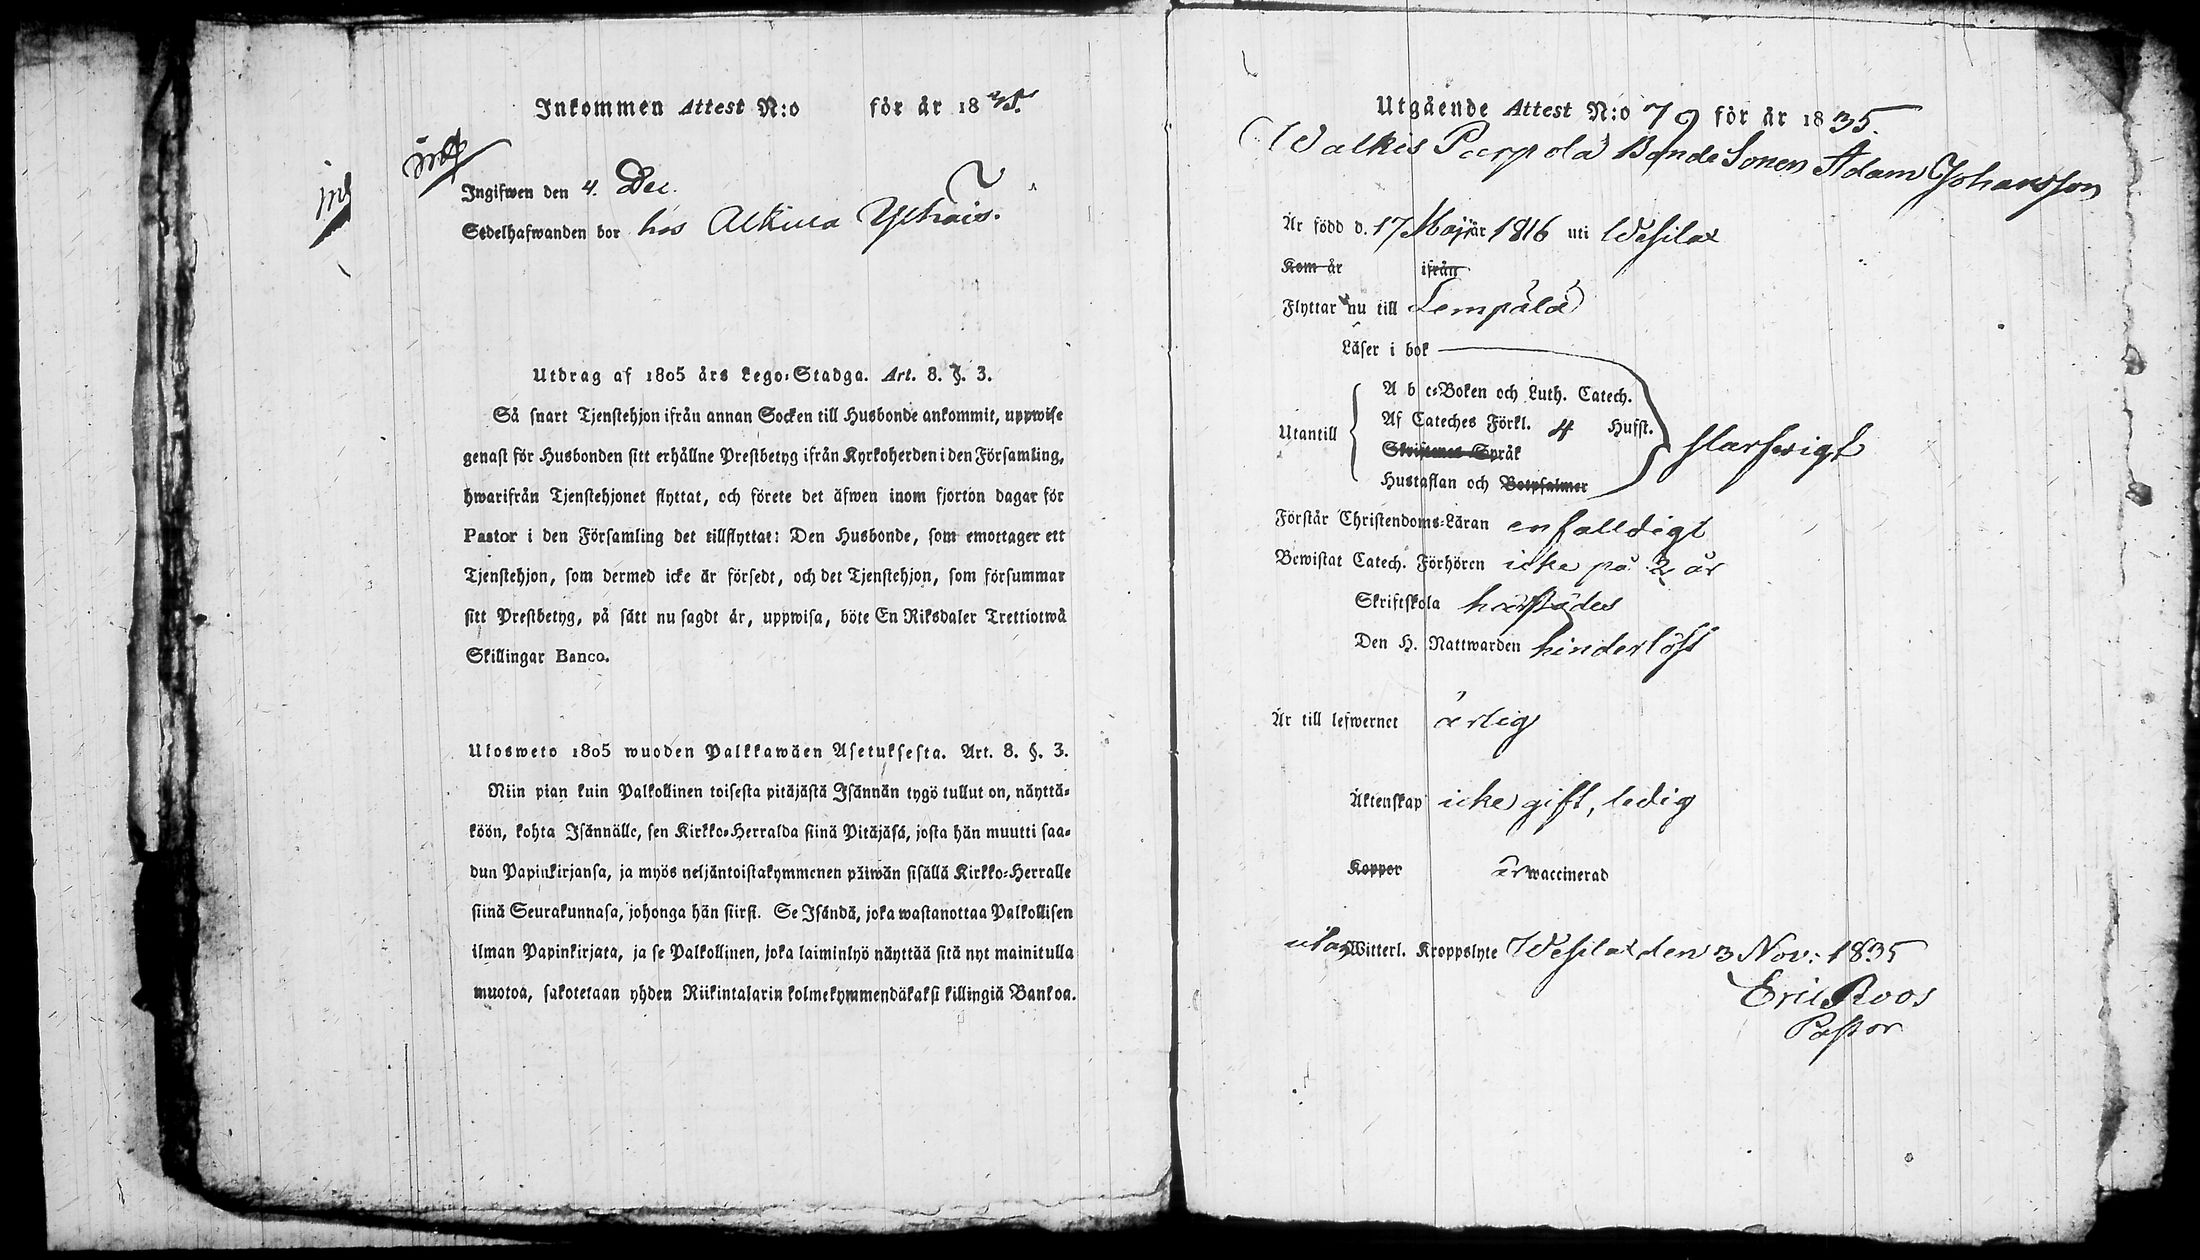 Inkommen Attest N:o för år 18
Ingifwen den 4. Dec.
Sedelhafwanden bor hos Alkula Ythais.
Utdrag af 1805 års Lego-Stadga. Art. 8. §. 3.
Så snart Tjenstehjon ifrån annan Socken till Husbonde ankommit, uppwise
genast för Husbonden sitt erhållne Prestbetyg ifrån Kyrkoherden i den Församling,
hwarifrån Tjenstehjonet flyttat, och förete det äfwen inom fjorton dagar för
Pastor i den Församling det tillflyttat: Den Husbonde, som emottager ett
Tjenstehjon, som dermed icke är försedt, och det Tjenstehjon, som försummar
sitt Prestbetyg, på sätt nu sagdt är, uppwisa, böte En Riksdaler Trettiotwå
Skillingar Banco.
Ulosweto 1805 wuoden Palkkawäen Asetuksesta. Art. 8. §. 3.
Niin pian kuin Palkollinen toisesta pitäjästä Isännän tygö tullut on, näyttä-
köön, kohta Isännälle, sen Kirkko-Herralda siinä Pitäjäsä, josta hän muutti saa-
dun Papinkirjansa, ja myös neljäntoistakymmenen päiwän sisällä Kirkko-Herralle
siinä Seurakunnasa, johonga hän siirsi. Se Isändä, joka wastanottaa Palkollisen
ilman Papinkirjata, ja se Palkollinen, joka laiminlyö näyttää sitä nyt mainitulla
muotoa, sakotetaan yhden Riikintalarin kolmekymmendäkaksi killingiä Bankoa.
Utgående Attest N:o 79 för år 1835.
Walkis Parpola Bonde Sonen Adam Johansson
Är född d. 17 Maji år 1816 uti Wesilax
Kom år ifrån
Flyttar nu till Lempälä
Läser i bok
A b c-Boken och Luth. Catech.
Utantill Af Cateches Förkl. 4 Hufst. slarfwigt
Skriftenes Språk
Hustaflan och Botpsalmer
Förstår Christendoms-Läran enfalldigt
Bewistat Catech. Förhören icke på 2 år
Skriftskola härstädes
Den H. Nattwarden hinderlöst
Är till lefwernet ärlig
Äktenskap icke gift, ledig
Koppor är waccinerad
utan Witterl. Kroppslyte Wesilax den 3 Nov: 1835
Eric Roos
Pastor